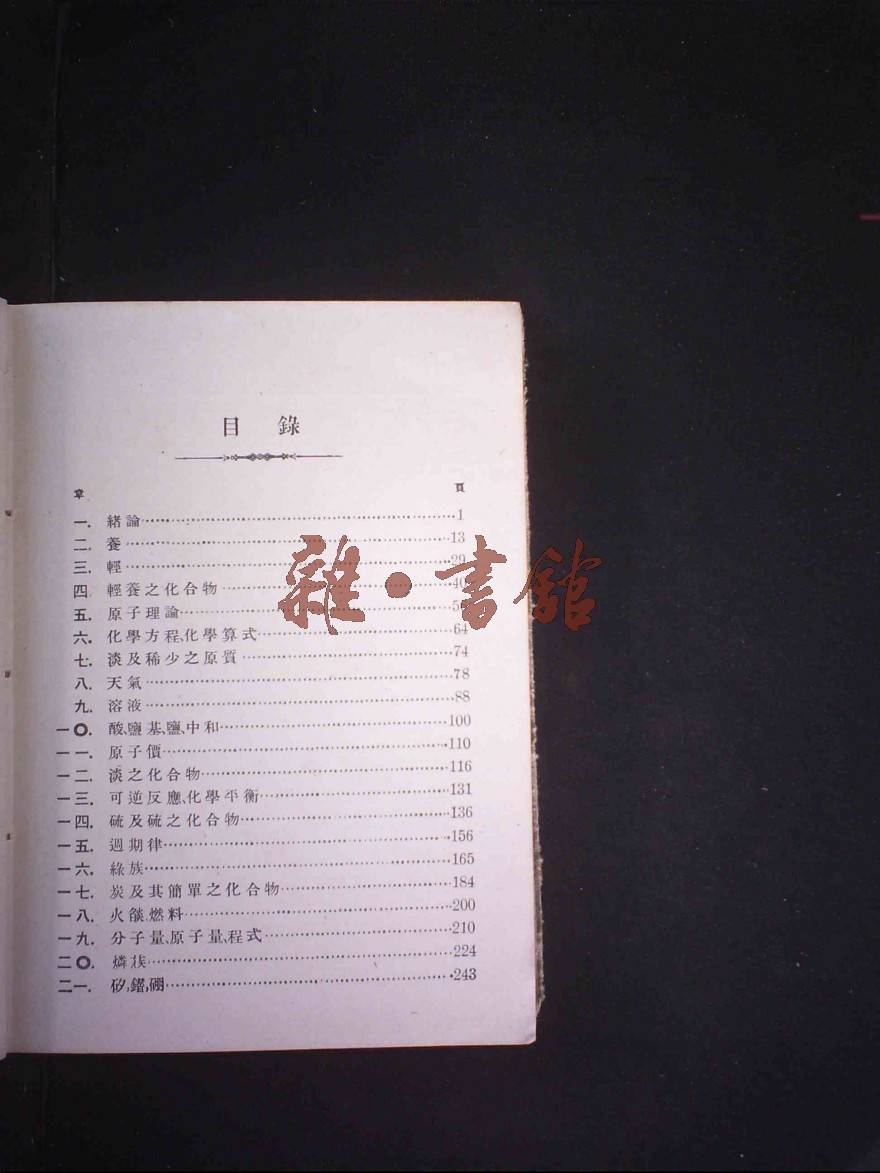 目錄
章 頁
一. 緒論 1
二. 養 13
三. 輕 29
四. 輕養之化合物 40
五. 原子理論
六. 化學方程、化學算式 64
七. 淡及稀少之原質 74
八. 天氣 78
九. 溶液 88
一〇. 酸、鹽基、鹽、中和 100
一一. 原子價 110
一二. 淡之化合物 116
一三. 可逆反應、化學平衡 131
一四. 硫及硫之化合物 136
一五. 週期律 156
一六. 綠族 165
一七. 炭及其簡單之化合物 184
一八. 火燄、燃料 200
一九. 分子量、原子量、程式 210
二〇. 燐族 224
二一. 矽,鍇,硼 243
雜·書館